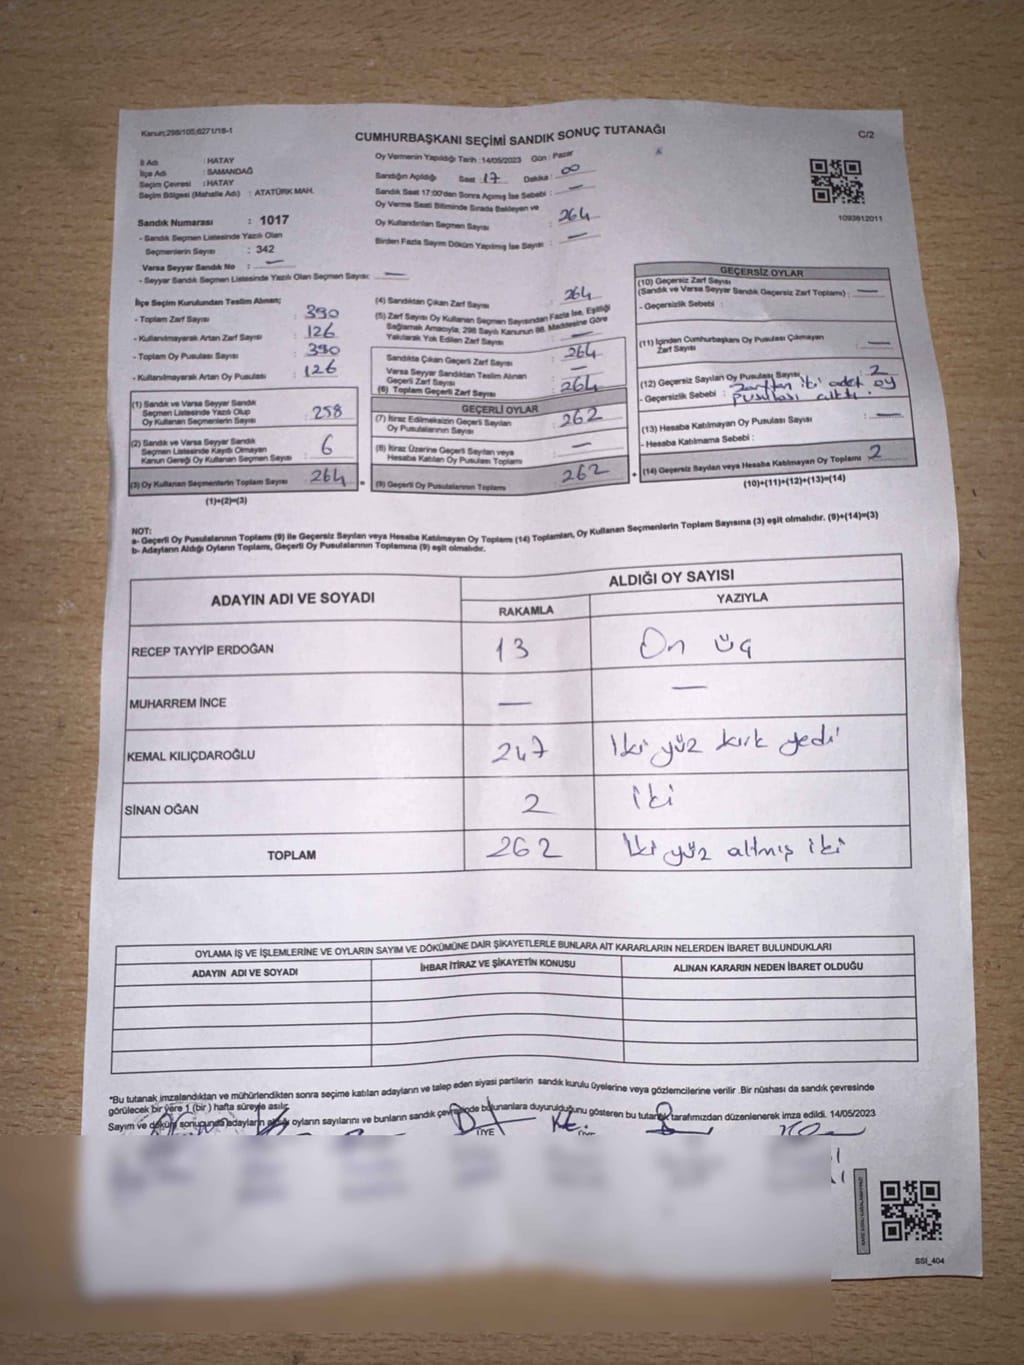 Kanun;298/105;6271/18-1
CUMHURBAŞKANI SEÇİMİ SANDIK SONUÇ TUTANAĞI
C/2
İl Adı : HATAY
İlçe Adı : SAMANDAĞ
Seçim Çevresi : HATAY
Seçim Bölgesi (Mahalle Adı) : ATATÜRK MAH.
Sandık Numarası : 1017
- Sandık Seçmen Listesinde Yazılı Olan
Seçmenlerin Sayısı : 342
Varsa Seyyar Sandık No : —
- Seyyar Sandık Seçmen Listesinde Yazılı Olan Seçmen Sayısı: —
Oy Vermenin Yapıldığı Tarih :14/05/2023 Gün : Pazar
Sandığın Açıldığı Saat :17 Dakika : 00
Sandık Saat 17:00'den Sonra Açımış İse Sebebi : —
Oy Verme Saati Bitiminde Sırada Bekleyen ve
Oy Kullandırılan Seçmen Sayısı : 264
Birden Fazla Sayım Döküm Yapılmış İse Sayısı : —
1093812011
İlçe Seçim Kurulundan Teslim Alınan;
- Toplam Zarf Sayısı : 390
- Kullanılmayarak Artan Zarf Sayısı : 126
- Toplam Oy Pusulası Sayısı : 390
- Kullanılmayarak Artan Oy Pusulası : 126
(1) Sandık ve Varsa Seyyar Sandık
Seçmen Listesinde Yazılı Olup
Oy Kullanan Seçmenlerin Sayısı : 258
(2) Sandık ve Varsa Seyyar Sandık
Seçmen Listesinde Kayıtlı Olmayan
Kanun Gereği Oy Kullanan Seçmen Sayısı : 6
(3) Oy Kullanan Seçmenlerin Toplam Sayısı : 264
(1)+(2)=(3)
(4) Sandıktan Çıkan Zarf Sayısı : 264
(5) Zarf Sayısı Oy Kullanan Seçmen Sayısından Fazla İse, Eşitliği
Sağlamak Amacıyla, 298 Sayılı Kanunun 98. Maddesine Göre
Yakılarak Yok Edilen Zarf Sayısı : —
Sandıkta Çıkan Geçerli Zarf Sayısı : 264
Varsa Seyyar Sandıktan Teslim Alınan
Geçerli Zarf Sayısı : —
(6) Toplam Geçerli Zarf Sayısı : 264
GEÇERLİ OYLAR
(7) İtiraz Edilmeksizin Geçerli Sayılan
Oy Pusulalarının Sayısı : 262
(8) İtiraz Üzerine Geçerli Sayılan veya
Hesaba Katılan Oy Pusulası Toplamı : —
(9) Geçerli Oy Pusulalarının Toplamı : 262
GEÇERSİZ OYLAR
(10) Geçersiz Zarf Sayısı
(Sandık ve Varsa Seyyar Sandık Geçersiz Zarf Toplamı) : —
- Geçersizlik Sebebi :
(11) İçinden Cumhurbaşkanı Oy Pusulası Çıkmayan
Zarf Sayısı : —
(12) Geçersiz Sayılan Oy Pusulası Sayısı : 2
- Geçersizlik Sebebi : Zarftan iki adet oy
pusulası çıktı.
(13) Hesaba Katılmayan Oy Pusulası Sayısı : —
- Hesaba Katılmama Sebebi :
(14) Geçersiz Sayılan veya Hesaba Katılmayan Oy Toplamı : 2
(10)+(11)+(12)+(13)=(14)
NOT:
a- Geçerli Oy Pusulalarının Toplamı (9) ile Geçersiz Sayılan veya Hesaba Katılmayan Oy Toplamı (14) Toplamları, Oy Kullanan Seçmenlerin Toplam Sayısına (3) eşit olmalıdır. (9)+(14)=(3)
b- Adayların Aldığı Oyların Toplamı, Geçerli Oy Pusulalarının Toplamına (9) eşit olmalıdır.
ADAYIN ADI VE SOYADI
ALDIĞI OY SAYISI
RAKAMLA YAZIYLA
RECEP TAYYİP ERDOĞAN 13 On üç
MUHARREM İNCE — —
KEMAL KILIÇDAROĞLU 247 İki yüz kırk yedi
SİNAN OĞAN 2 iki
TOPLAM 262 İki yüz altmış iki
OYLAMA İŞ VE İŞLEMLERİNE VE OYLARIN SAYIM VE DÖKÜMÜNE DAİR ŞİKAYETLERLE BUNLARA AİT KARARLARIN NELERDEN İBARET BULUNDUKLARI
ADAYIN ADI VE SOYADI İHBAR İTİRAZ VE ŞİKAYETİN KONUSU ALINAN KARARIN NEDEN İBARET OLDUĞU
"Bu tutanak imzalandıktan ve mühürlendikten sonra seçime katılan adayların ve talep eden siyasi partilerin sandık kurulu üyelerine veya gözlemcilerine verilir .Bir nüshası da sandık çevresinde
görülecek bir yere 1 (bir ) hafta süreyle asılır.
Sayım ve döküm sonucunda adayların aldığı oyların sayılarını ve bunların sandık çevresinde bulunanlara duyurulduğunu gösteren bu tutanak tarafımızdan düzenlenerek imza edildi. 14/05/2023
SSI_404